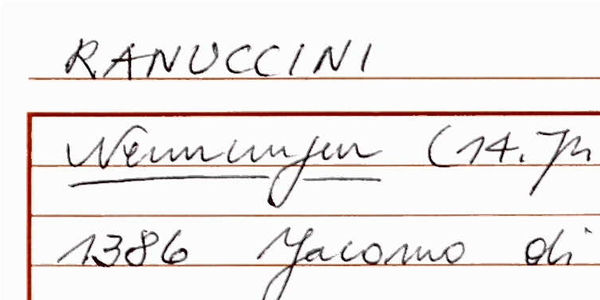 RANUCCINI
Nennungen (14. Jh
1386 Jacomo di